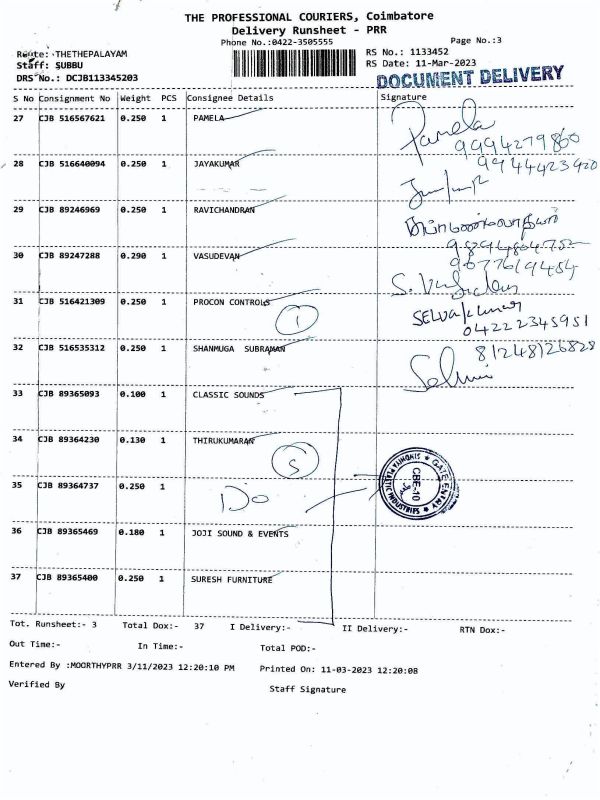 THE PROFESSIONAL COURIERS, Coimbatore
Delivery Runsheet - PRR
Phone No.:0422-3505555
Page No.:3
Route: THETHEPALAYAM
RS No.: 1133452
Staff: SUBBU
RS Date: 11-Mar-2023
DRS No.: DCJB113345203
DOCUMENT DELIVERY
S No Consignment No Weight PCS Consignee Details Signature
27 CJB 516567621 0.250 1 PAMELA Pamela
9994279860
28 CJB 516640094 0.250 1 JAYAKUMAR 9944423920
29 CJB 89246969 0.250 1 RAVICHANDRAN
30 CJB 89247288 0.290 1 VASUDEVAN
9677619454
31 CJB 516421309 0.250 1 PROCON CONTROLS SELVAkumar
1
04222345951
32 CJB 516535312 0.250 1 SHANMUGA SUBRAMAN 81248126828
Selvi
33 CJB 89365093 0.100 1 CLASSIC SOUNDS
34 CJB 89364230 0.130 1 THIRUKUMARAN
5
GATE ENTRY
CBE-10
PLASTIC INDUSTRIES
35 CJB 89364737 0.250 1 Do
36 CJB 89365469 0.180 1 JOJI SOUND & EVENTS
37 CJB 89365400 0.250 1 SURESH FURNITURE
Tot. Runsheet:- 3 Total Dox:- 37 I Delivery:- II Delivery:- RTN Dox:-
Out Time:- In Time:- Total POD:-
Entered By :MOORTHYPRR 3/11/2023 12:20:10 PM Printed On: 11-03-2023 12:20:08
Verified By Staff Signature